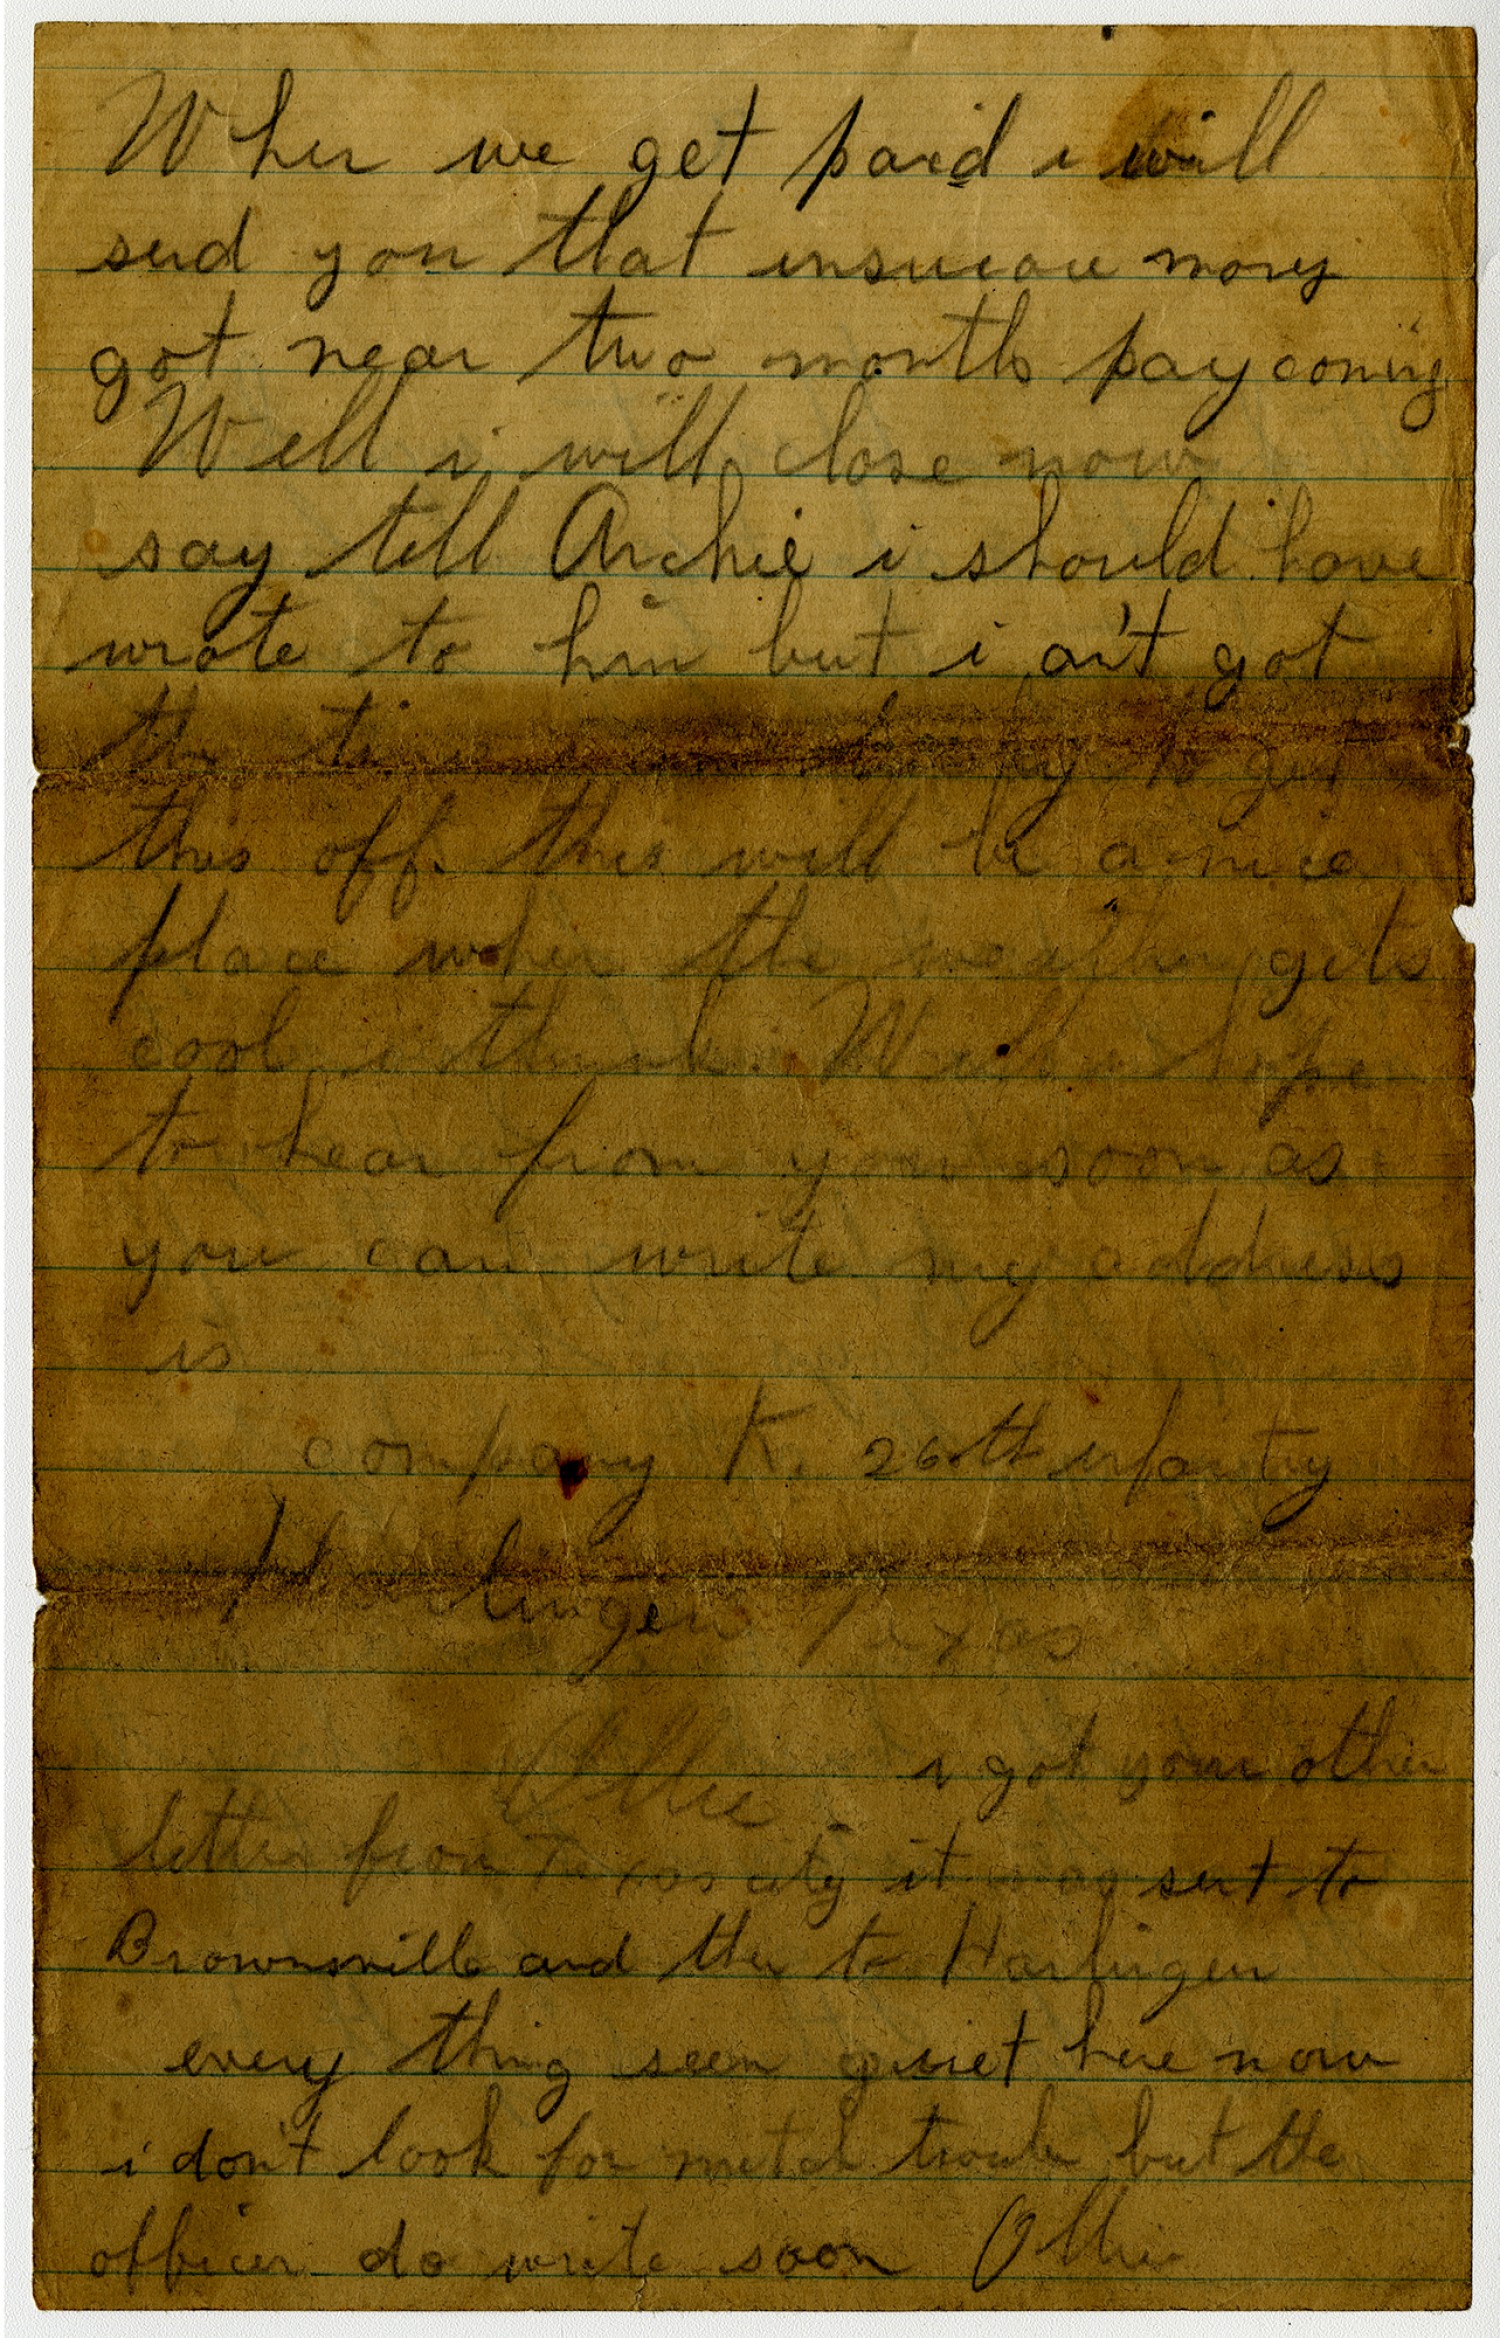 When we get paid i will
send you that insurance mony
got near two months pay coming
Well i will close now
say tell Archie i should have
wrote to him but i ain't got
the time to get
this off. this will be a nice
place when the weather gets
cool i think. Well i hope
to hear from you soon as
you can write my address
is
company K. 26th infantry
Harlingen Texas
Ollie i got your other
letter from Texas city it was sent to
Brownsville and then to Harlingen
every thing seem quiet here now
i don't look for mutch trouble but the
officer do write soon Ollie